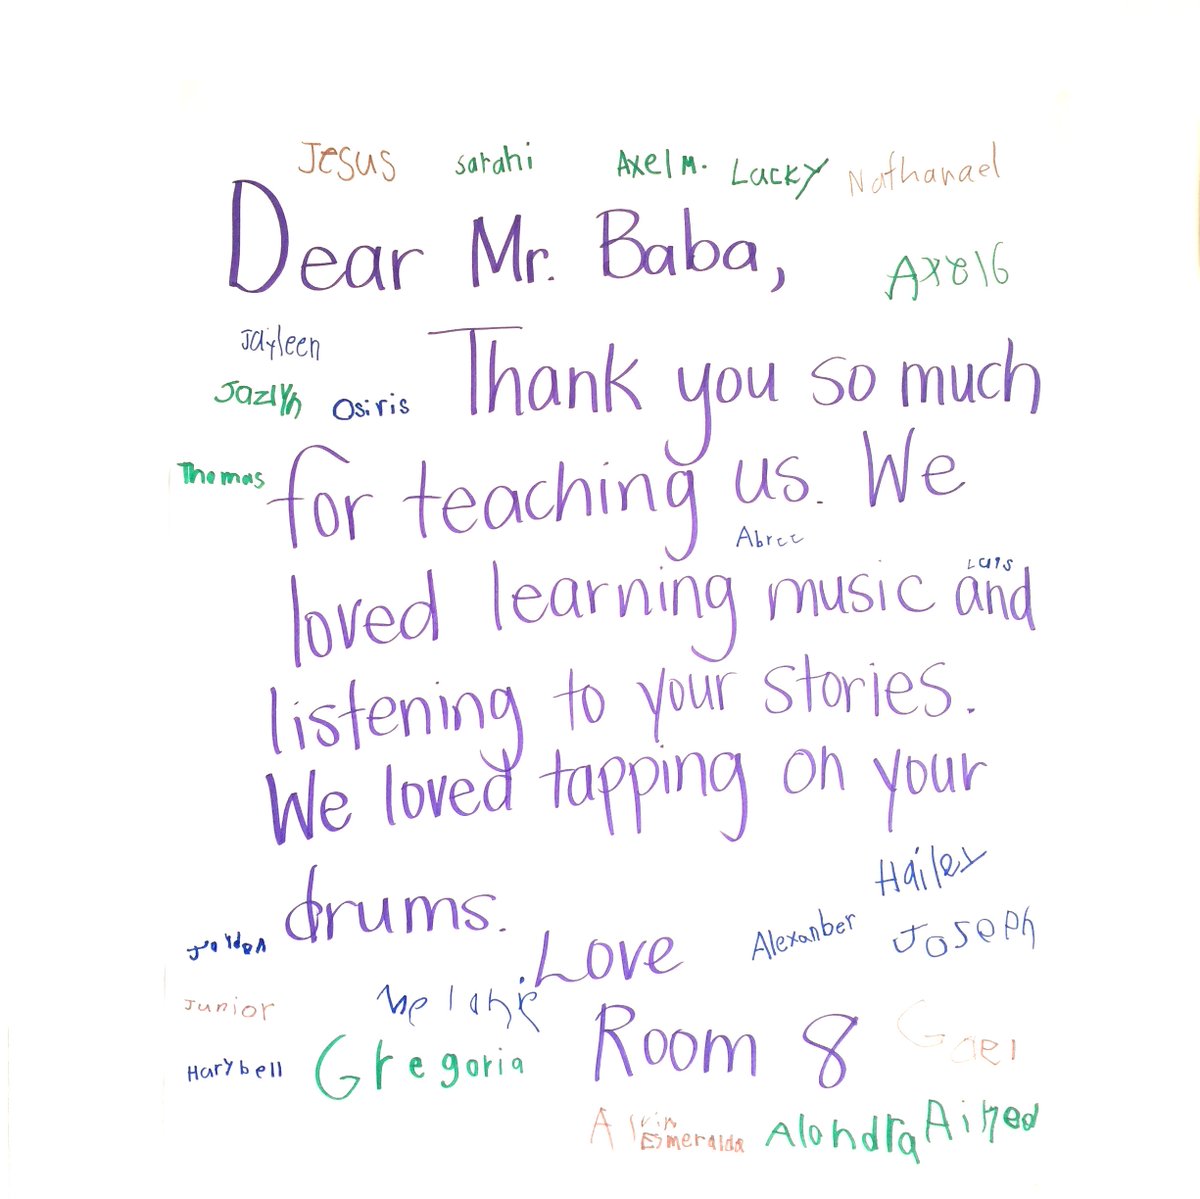 Jesus sarahi Axel M. Lucky Nathanael
Dear Mr. Baba,
Axel G
Jayleen
Thank you so much
Jazlyn Osiris
Thomas
for teaching us. We
Luis
loved learning music and
listening to your stories.
We loved tapping on your
Hailey
drums.
Alexanber Joseph
Jayden
Love
Junior Melanie
Room 8 Gael
Harybell Gregoria
Esmeralda Alondra